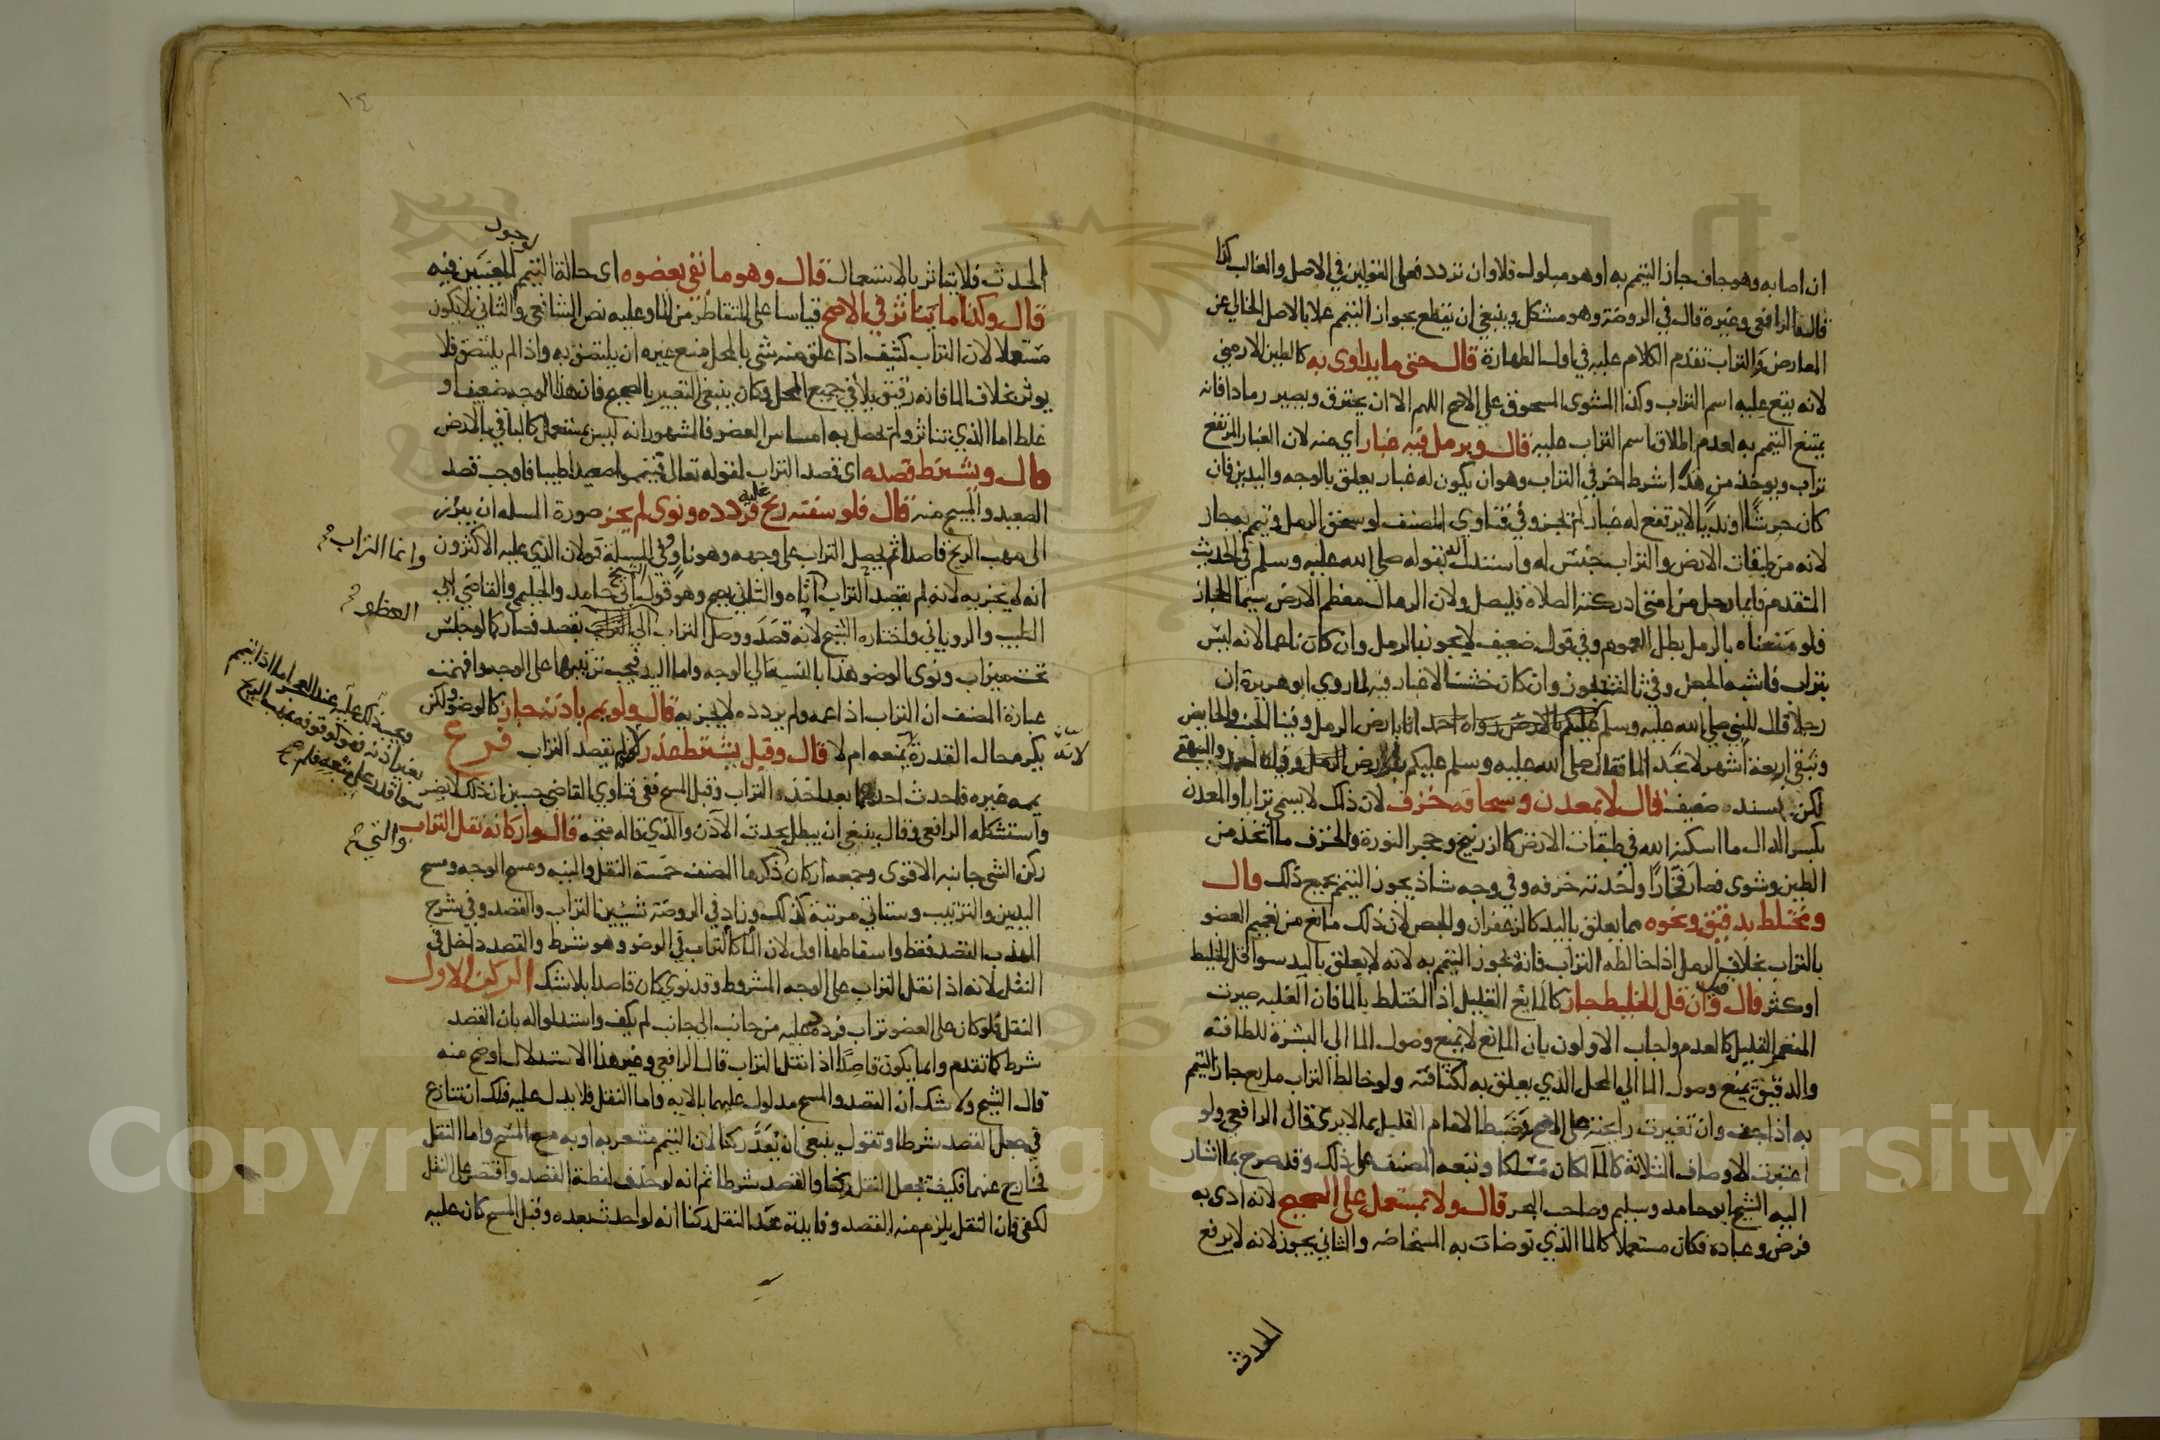 ان اصابه وهو جاف جاز التيمم به او هو مبلول فلا وان تردد فعلى القولين في الاصل والغالب كذا
قاله الرافعي وغيره قال في الروضة وهو مشكل وينبغي ان يقطع بجواز التيمم عملا بالاصل الخالي عن
المعارض والتراب تقدم الكلام عليه في اول الطهارة قال حتى ما يداوى به كالطين الارمني
لانه يقع عليه اسم التراب وكذا المشوى المسحوق على الاصح اللهم الا ان يحترق ويصير رمادا فانه
يمتنع التيمم به لعدم اطلاق اسم التراب عليه قال وبرمل فيه غبار اي منه لان الغبار المرتفع
تراب ويوخذ من هذا اشتراط اخر في التراب وهو ان يكون له غبار يعلق بالوجه واليدين فان
كان جرشا او نديا لا يرتفع له غبار لم يجز وفي فتاوي المصنف لو سحق الرمل وتيمم به جاز
لانه من طبقات الارض والتراب جنس له واستدل له بقوله صلى الله عليه وسلم في الحديث
المتقدم فايما رجل من امتي ادركته الصلاه فليصل ولان الرمال معظم الارض سيما الحجاز
فلو منعناه بالرمل بطل العموم وفي قول ضعيف لا يجوز بالرمل وان كان ناعما لانه ليس
بتراب فاشبه الجص وفي ثالث يجوز وان كان خشنا لا غبار فيه لما روي ابو هريرة ان
رجلا قال للنبي صلى الله عليه وسلم انا بارض الرمل وفينا الجنب والحايض
ونبقى اربعة اشهر لا نجد الما فقال صلى الله عليه وسلم عليكم بالارض رواه احمد والبيهقي
لكن بسند ضعيف قال لا بمعدن وسحاقة خزف لان ذلك لا يسمى ترابا والمعدن
بكسر الدال ما اسكنه الله في طبقات الارض كالزرنيخ وحجر النورة والخزف ما اتخذ من
الطين وشوى فصار فخارا واحدته خزفه وفي وجه شاذ يجوز التيمم بجميع ذلك قال
ومختلط بدقيق ونحوه مما يعلق باليد كالزعفران والجص لان ذلك مانع من تعميم العضو
بالتراب بخلاف الرمل اذا خالطه التراب فانه يجوز التيمم به لانه لا يعلق باليد سوا قل الخليط
او كثر قال وقيل ان قل الخليط جاز كالمايع القليل اذا اختلط بالما فان الغلبه صيرت
المنغمر القليل كالعدم واجاب الاولون بان المايع لا يمنع وصول الما الى البشرة للطافته
والدقيق يمنع وصول الما الي المحل الذي يعلق به لكثافته ولو خالط التراب مايع جاز التيمم
به اذا جف وان تغيرت رايحته على الاصح وضبط الامام القليل بما لا يرى قال الرافعي ولو
اعتبرت الاوصاف الثلاثة كالما لكان مسلكا وتبعه المصنف على ذلك وقد صرح بما اشار
اليه الشيخ ابو حامد وسليم وصاحب البحر قال ولا بمستعمل على الصحيح لانه ادى به
فرض وعباده فكان مستعملا كالما الذي توضات به المستحاضه والثاني يجوز لانه لا يرفع
الحدث
١٠٤
لوجود
الحدث فلا يتاثر بالاستعمال قال وهو ما بقى بعضوه اي حالة التيمم فيه
قال وكذا ما تناثر في الاصح قياسا على المتقاطر من الما وعليه نص الشافعي والثاني لا يكون
مستعملا لان التراب كثيف اذا علق منه شي بالمحل منع غيره ان يلتصق به واذا لم يلتصق فلا
يوثر بخلاف الما فانه رقيق يلاقي جميع المحل وكان ينبغي التعبير بالصحيح فان هذا الوجه ضعيف او
غلط اما الذي تناثر ولم يحصل به امساس العضو فالمشهور انه ليس بمستعمل كالباقي بالارض
قال ويشترط قصده اي قصد التراب لقوله تعالى فتيمموا صعيدا طيبا فاوجب قصد
الصعيد والمسح منه قال فلو سفته ريح عليه فردده ونوى لم يجز صورة المسله ان يبرز
الى مهب الريح قاصدا ثم يحصل التراب على وجهه وهو ناو وفي المسلة قولان الذي عليه الاكثرون
انه لا يجزيه لانه لم يقصد التراب اتاه والثاني يصح وهو قول الشيخ ابي حامد والحليمي والقاضي ابي
الطيب والروياني واختاره الشيخ لانه قصد ووصل التراب الى بقصد فصار كما لو جلس
تحت ميزاب ونوى الوضو هذا بالنسبة الي الوجه واما اليد فيجب ترتيبها على الوجه وافهمت
عبارة المصنف ان التراب اذا عمه ولم يردده لا يجزيه قال ولو يمم باذنه جاز كالوضو ولكن
يكره مع القدرة بمنعه ام لا قال وقيل يشترط عذر لانه لم يقصد التراب فرع
يممه غيره فاحدث احدهما بعد اخذ التراب وقبل المسح ففي فتاوي القاضي حسين ان ذلك لا يضر
واستشكله الرافعي وقال ينبغي ان يبطل بحدث الآذن والذي قاله متجه قال واركانه نقل التراب
ركن الشي جانبه الاقوى وجميعه اركان ذكرها المصنف خمسة النقل والنيه ومسح الوجه ومسح
اليدين والترتيب وستاتي مرتبة كذلك وزاد في الروضة شيئين التراب والقصد وفي شرح
المهذب القصد فقط واسقاطهما اولى لان الما كالتراب في الوضو وهو شرط والقصد داخل في
النقل لانه اذا نقل التراب على الوجه المشروط وقد نوي كان قاصدا بلا شك الركن الاول
النقل فلو كان على العضو تراب فردده عليه من جانب الي جانب لم يكف واستدلوا له بان القصد
شرط كما تقدم وانما يكون قاصدا اذا نقل التراب قال الرافعي وغير هذا الاستدلال اوضح منه
قال الشيخ ولا شك ان القصد والمسح مدلول عليهما بالايه واما النقل فلا يدل عليه فلك ان تنازع
في جعل القصد شرطا وتقول ينبغي ان يعد ركنا لان التيمم مشعر به او به مع المسح واما النقل
فخارج عنهما فكيف يجعل النقل ركنا والقصد شرطا ثم انه لو حذف لفظة القصد واقتصر على النقل
لكفى فان النقل يلزم منه القصد وفايدته عد النقل ركنا انه لو احدث بعده وقبل المسح كان عليه
وانما التراب
العطار
لانه
والنية